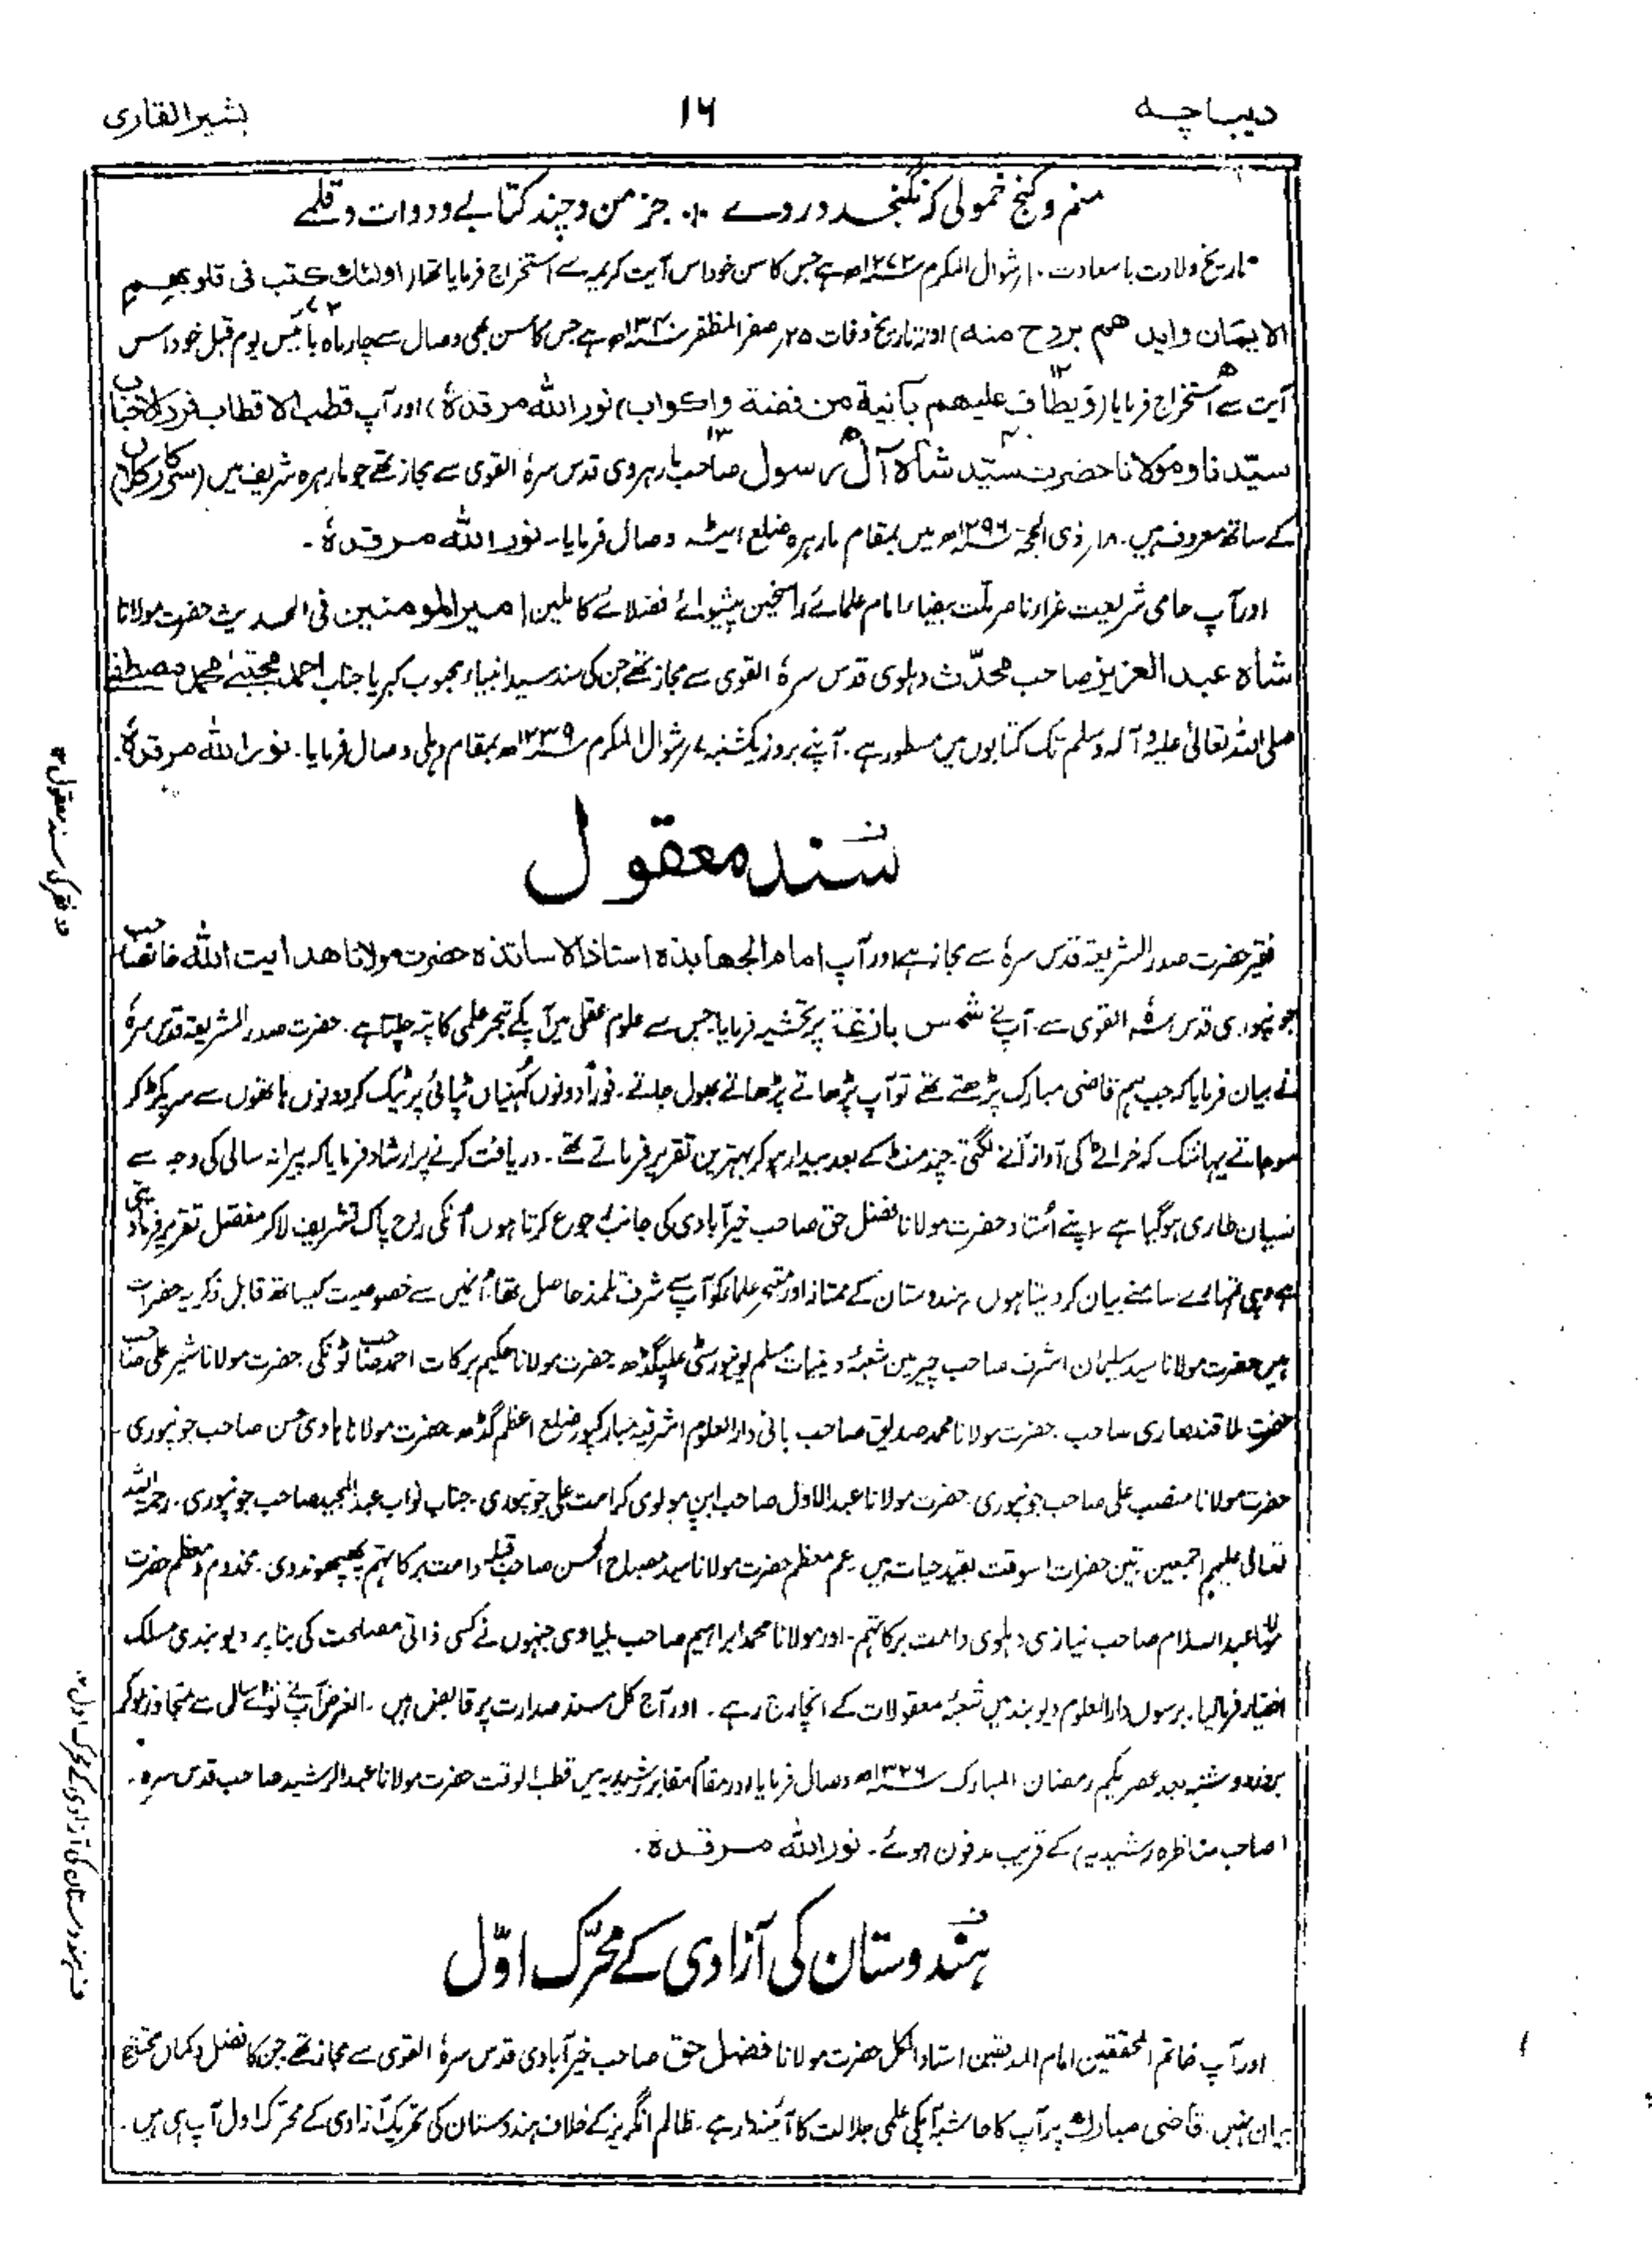 دیباچہ
۱۶
بشیر القاری
منم و کنج خمولی کہ نگنجد در وے ؞ جز من و چند کتابے و دوات و قلمے
تاریخ ولادت باسعادت ۱۰ر شوال المکرم ۱۲۷۲ھ ہے جس کا سن خود اس آیت کریمہ سے استخراج فرمایا تھا (اولئک کتب فی قلوبھم
الایمان وایدھم بروح منہ) اور تاریخ وفات ۲۵ر صفر المظفر ۱۳۴۰ھ ہے جس کا سن بھی وصال سے چار ماہ بائیس یوم قبل خود اس
آیت سے استخراج فرمایا (ویطاف علیھم بآنیة من فضة واکواب) نور اللہ مرقدہٗ) اور آپ قطب الاقطاب فرد الاحباب
سیّدنا و مولانا حضرت سیّد شاہ آل رسول صاحب مارہروی قدس سرہٗ القوی سے مجاز تھے جو مارہرہ شریف میں (سرکار کلاں)
کے ساتھ معروف ہیں۔ ۱۸ر ذی الحجہ ۱۲۹۶ھ میں بمقام مارہرہ ضلع ایٹہ وصال فرمایا۔ نور اللہ مرقدہٗ۔
اور آپ حامی شریعت غرار ناصر ملّت بیضا امام علمائے راسخین پیشوائے فضلائے کاملین امیر المومنین فی الحدیث حضرت مولانا
شاہ عبد العزیز صاحب محدّث دہلوی قدس سرہٗ القوی سے مجاز تھے جن کی سند سید انبیاء محبوب کبریا جناب احمد مجتبےٰ محمد مصطفےٰ
صلی اللہ تعالیٰ علیہ وآلہ وسلم تک کتابوں میں مسطور ہے۔ آپ نے بروز یکشنبہ ۷ر شوال المکرم ۱۲۳۹ھ بمقام دہلی وصال فرمایا۔ نور اللہ مرقدہٗ۔
سند معقول
فقیر حضرت صدر الشریعۃ قدس سرہٗ سے مجاز ہے اور آپ امام الجھابذہ استاذ الاساتذہ حضرت مولانا ھدایت اللہ خانصاحب
جونپوری قدس سرہٗ القوی سے۔ آپ نے شمس بازغہ پر تحشیہ فرمایا جس سے علوم عقلی میں آپکے تبحر علمی کا پتہ چلتا ہے۔ حضرت صدر الشریعۃ قدس سرہٗ
نے بیان فرمایا کہ جب ہم قاضی مبارک پڑھتے تھے تو آپ پڑھاتے پڑھاتے بھول جاتے۔ فوراً دونوں کہنیاں تپائی پر ٹیک کر دونوں ہاتھوں سے سر پکڑ کر
سو جاتے یہانتک کہ خراٹے کی آواز آنے لگتی۔ چند منٹ کے بعد بیدار ہو کر بہترین تقریر فرماتے تھے۔ دریافت کرنے پر ارشاد فرمایا کہ پیرانہ سالی کی وجہ سے
نسیان طاری ہو گیا ہے اپنے اُستاد حضرت مولانا فضل حق صاحب خیرآبادی کی جانب رجوع کرتا ہوں اُنکی روح پاک تشریف لا کر مفصل تقریر فرما دیتی
ہے وہی تمہارے سامنے بیان کر دیتا ہوں ہندوستان کے ممتاز اور متبحر علما کو آپ سے شرف تلمذ حاصل تھا۔ اُنمیں سے خصوصیت کیساتھ قابل ذکر یہ حضرات
ہیں حضرت مولانا سید سلیمان اشرف صاحب چیرمین شعبۂ دینیات مسلم یونیورسٹی علیگڈھ۔ حضرت مولانا حکیم برکات احمد صاحب ٹونکی۔ حضرت مولانا شیر علی صاحب
حضرت ملا قندھاری صاحب۔ حضرت مولانا محمد صدیق صاحب بانی دار العلوم اشرفیہ مبارکپور ضلع اعظم گڈھ۔ حضرت مولانا ہادی حسن صاحب جونپوری۔
حضرت مولانا منصب علی صاحب جونپوری۔ حضرت مولانا عبد الاول صاحب ابن مولوی کرامت علی جونپوری۔ جناب نواب عبد المجید صاحب جونپوری۔ رحمۃ اللہ
تعالیٰ علیہم اجمعین تین حضرات اسوقت بقید حیات ہیں۔ عم معظم حضرت مولانا سید مصباح الحسن صاحب قبلہ دامت برکاتہم پھپھوندوی۔ مخدوم و معظم حضرت
مولانا عبد السلام صاحب نیازی دہلوی دامت برکاتہم۔ اور مولانا محمد ابراہیم صاحب بلیاوی جنہوں نے کسی ذاتی مصلحت کی بنا پر دیوبندی مسلک
اختیار فرما لیا۔ برسوں دار العلوم دیوبند میں شعبۂ معقولات کے انچارج رہے۔ اور آج کل مسند صدارت پر قابض ہیں۔ الغرض آپ نے نوّے سال سے متجاوز ہو کر
بروز دو شنبہ بعد عصر یکم رمضان المبارک ۱۳۲۶ھ وصال فرمایا اور مقام مقابر رشیدیہ میں قطب الوقت حضرت مولانا عبد الرشید صاحب قدس سرہ۔
(صاحب مناظرہ رشیدیہ) کے قریب مدفون ہوئے۔ نور اللہ مرقدہٗ۔
ہندوستان کی آزادی کے محرّک اوّل
اور آپ خاتم المحققین امام المدققین استاد الکل حضرت مولانا فضل حق صاحب خیرآبادی قدس سرہٗ القوی سے مجاز تھے جن کا فضل و کمال محتاج
بیان نہیں۔ قاضی مبارک پر آپ کا حاشیہ آپکی علمی جلالت کا آئینہ دار ہے۔ ظالم انگریز کے خلاف ہندوستان کی تحریک آزادی کے محرّک اول آپ ہی ہیں۔
فقیر کی سند معقول
ہندوستان کی آزادی کے محرک اول